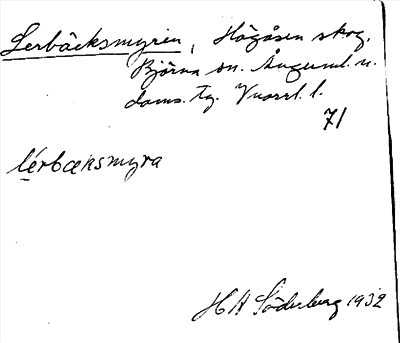 Lerbäcksmyrin, Högåsen skog.
Björna sn. Ångml. n.
doms. Tg. Vnorrl. l.
71
lérbæksmyra
H A Söderberg 1932